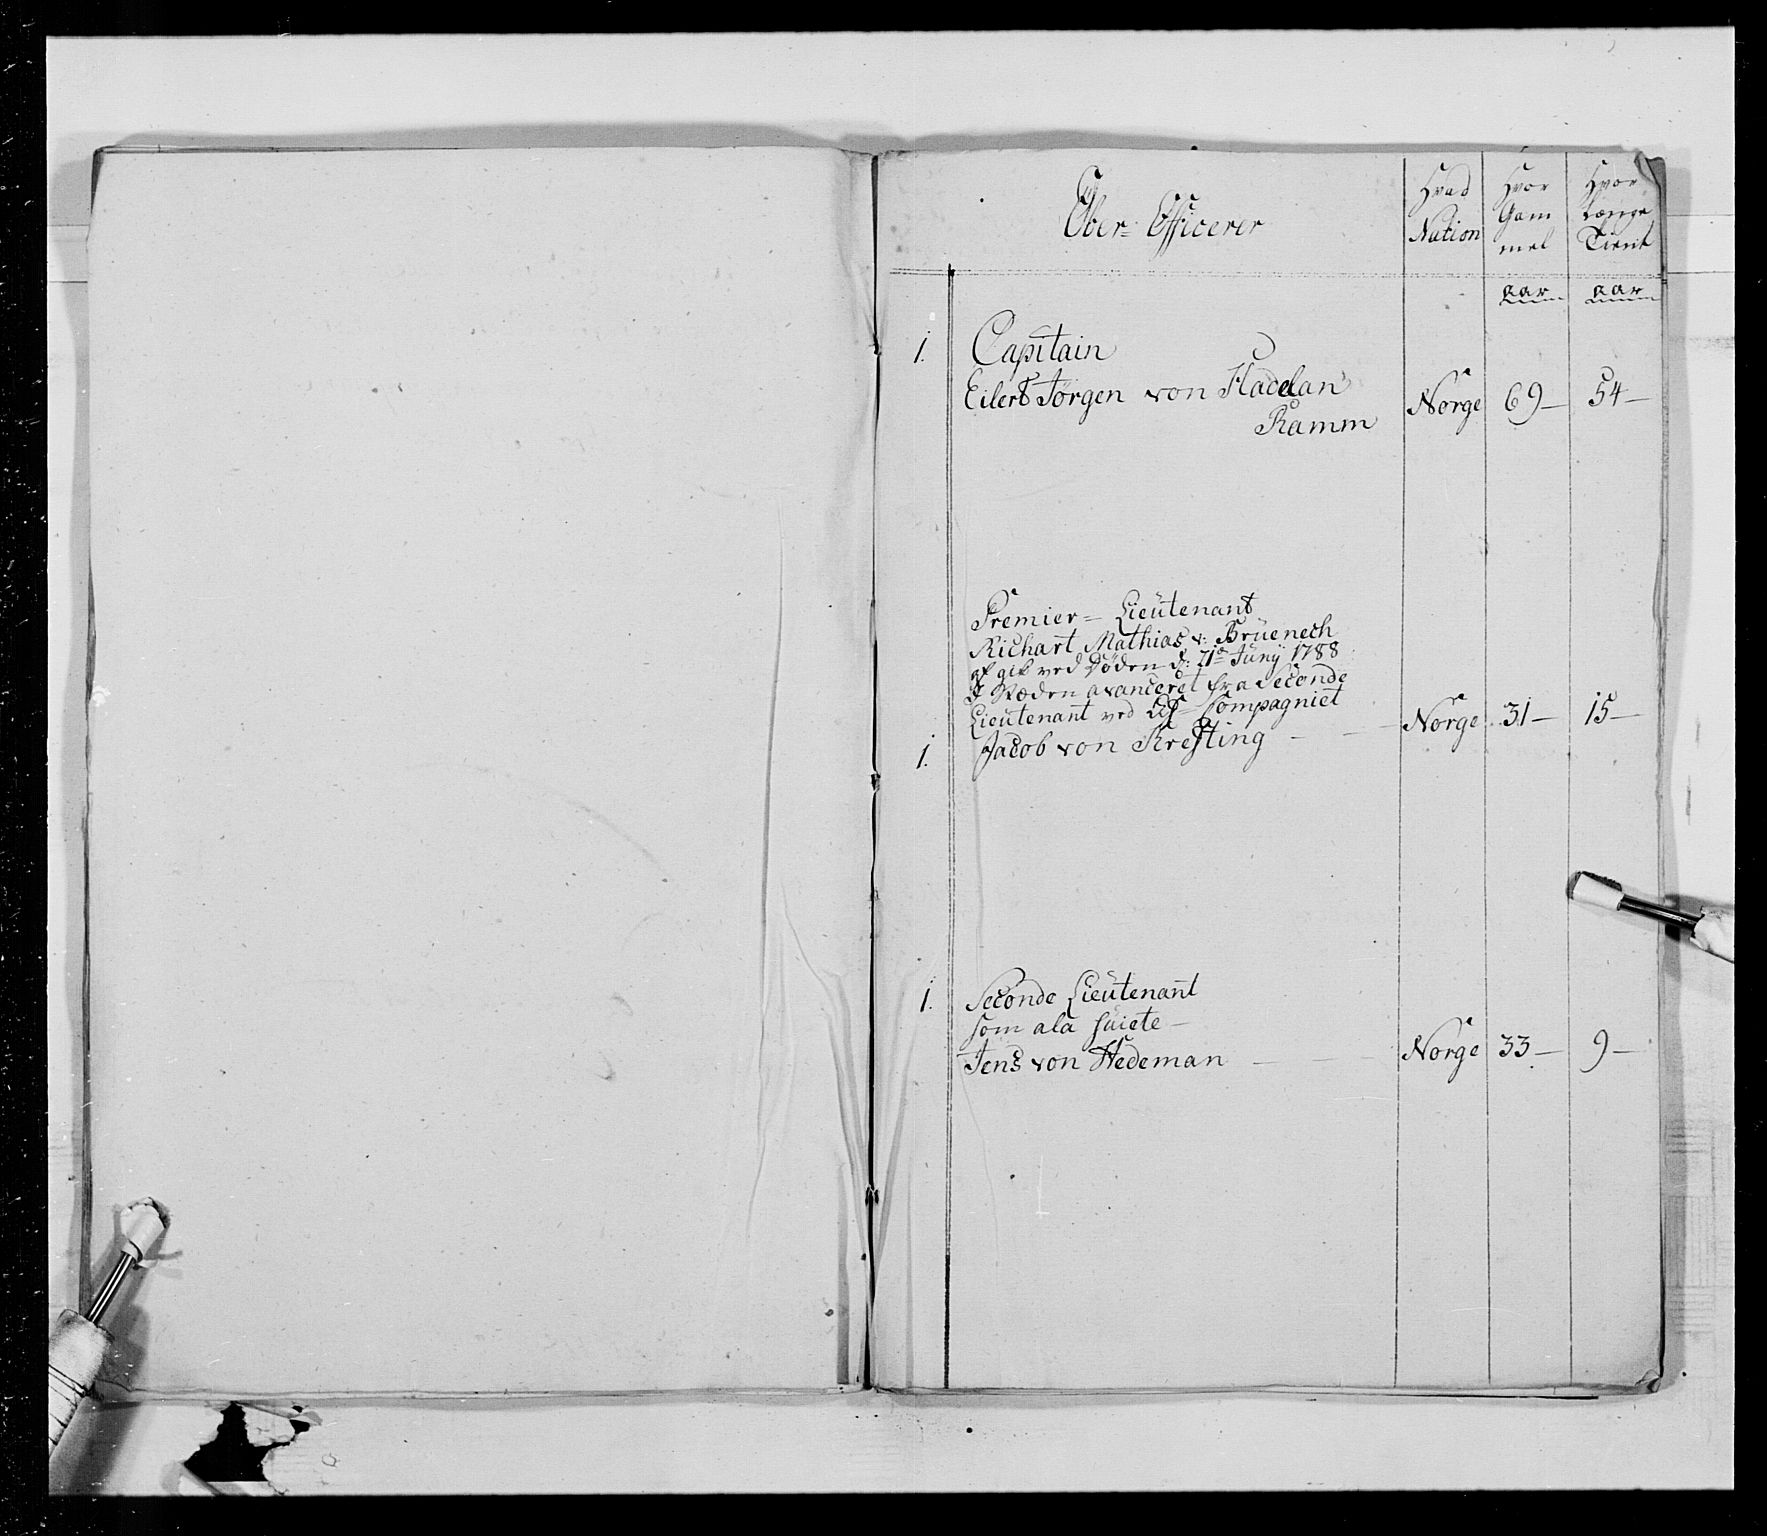 Ober= Officerer
Hvad Nation
Hvor Gam mel
Hvor Længe Tient
aar aar
1. Capitain
Eilert Jørgen von Hadelan
Ramm Norge 69— 54—
Premier= Lieutenant
Richart Mathias v: Brüenech
af gik ved Døden d: 21de Junÿ 1788
I Stæden avanceret fra Seconde
Lieutenant ved Compagniet
1. Jacob von Kresting — — Norge 31— 15—
1. Seconde Lieutenant
som ala suiete—
Jens von Hedeman — — — Norge 33— 9—